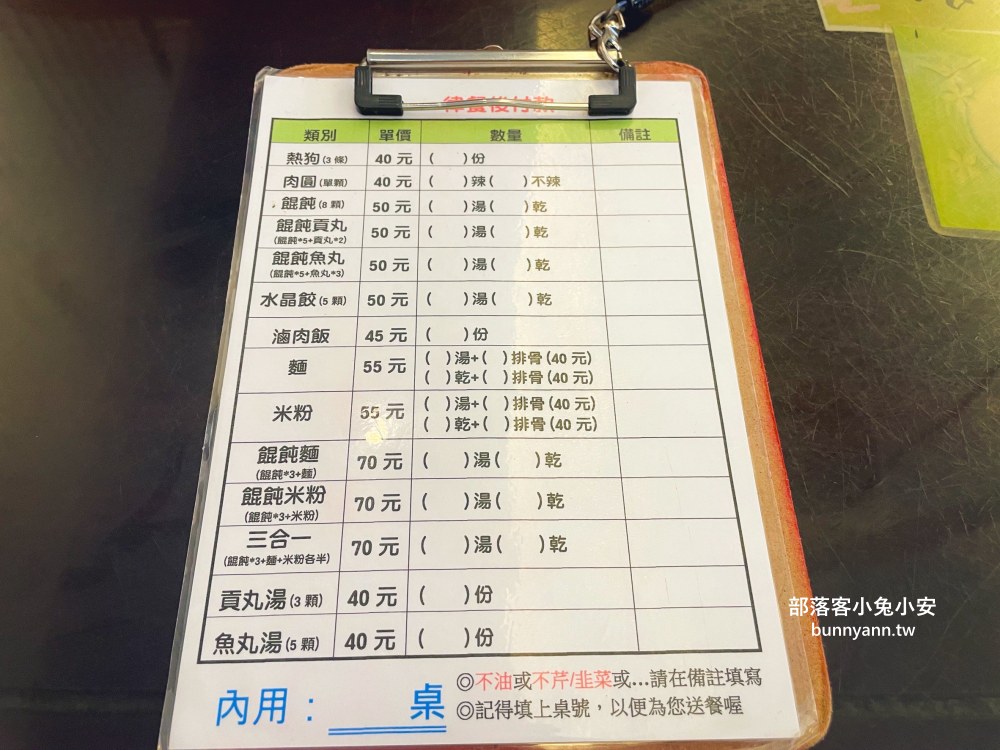 類別 單價 數量 備註
熱狗(3 條) 40 元 ( )份
肉圓(單顆) 40 元 ( )辣( )不辣
餛飩(8 顆) 50 元 ( )湯( )乾
餛飩貢丸 50 元 ( )湯( )乾
(餛飩*5+貢丸*2)
餛飩魚丸 50 元 ( )湯( )乾
(餛飩*5+魚丸*3)
水晶餃(5 顆) 50 元 ( )湯( )乾
滷肉飯 45 元 ( )份
麵 55 元 ( )湯+( )排骨(40 元)
( )乾+( )排骨(40 元)
米粉 55 元 ( )湯+( )排骨(40 元)
( )乾+( )排骨(40 元)
餛飩麵 70 元 ( )湯( )乾
(餛飩*3+麵)
餛飩米粉 70 元 ( )湯( )乾
(餛飩*3+米粉)
三合一 70 元 ( )湯( )乾
(餛飩*3+麵+米粉各半)
貢丸湯(3 顆) 40 元 ( )份
魚丸湯(5 顆) 40 元 ( )份
內用：____桌
◎不油或不芹/韭菜或...請在備註填寫
◎記得填上桌號，以便為您送餐喔
部落客小兔小安
bunnyann.tw